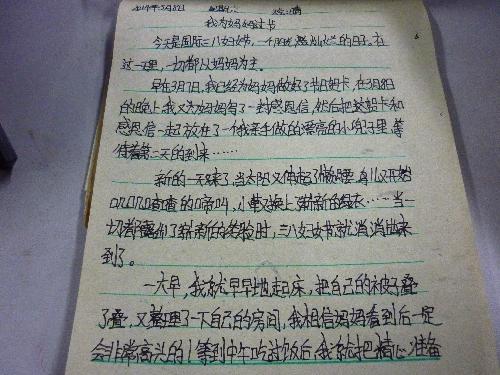 2014年3月8日 星期六 晴
我为妈妈过节
今天是国际三八妇女节,一个阳光灿烂的日子。在
这一天里,一切都以妈妈为主。
早在3月7日,我已经为妈妈做好了节日贺卡,在3月8日
的晚上我又为妈妈写了一封感恩信,然后把这贺卡和
感恩信一起放在了一个我亲手做的漂亮的小兜子里,等
待着第二天的到来……
新的一天来了,当太阳又伸起了懒腰,鸟儿又开始
叽叽喳喳的啼叫,小草又换上了崭新的绿衣……当一
切都露出了崭新的笑脸时,三八妇女节就悄悄地来
到了。
一大早,我就早早地起床,把自己的被子叠
了叠,又整理了一下自己的房间,我相信妈妈看到后一定
会非常高兴的!等到中午吃过饭后,我就把精心准备